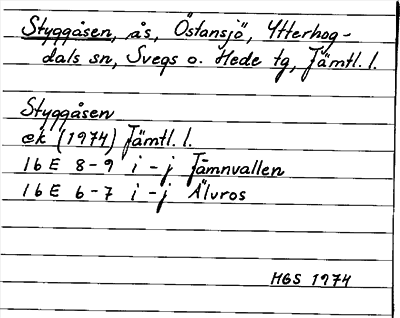 Styggåsen, ås, Östansjö, Ytterhog-
dals sn, Svegs o. Hede tg, Jämtl. l.
Styggåsen
ek (1974) Jämtl. l.
16 E 8-9 i-j Jämnvallen
16 E 6-7 i-j Älvros
HGS 1974